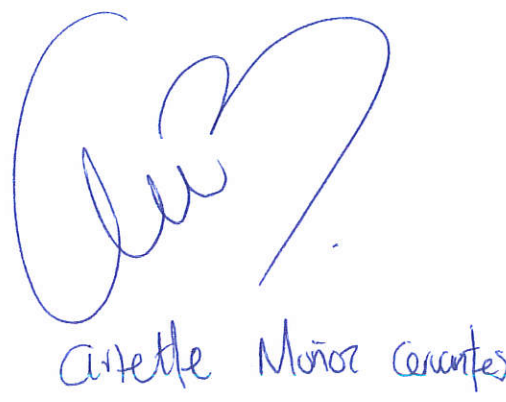 arlette Muñoz Cervantes